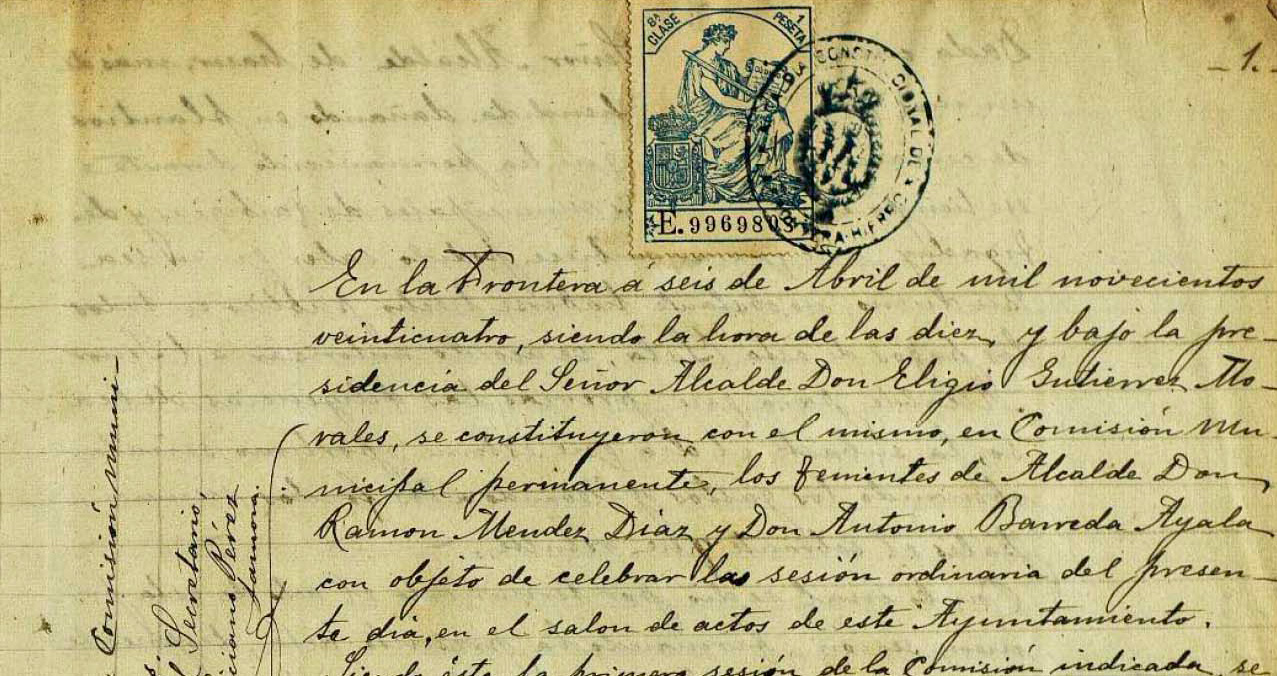 8ª CLASE
1 PESETA
- 1. -
E. 996980
CONSTI CIONAL DE
En la Frontera á seis de Abril de mil novecientos
veinticuatro, siendo la hora de las diez, y bajo la pre-
sidencia del Señor Alcalde Don Eligio Gutierrez Mo-
rales, se constituyeron con el mismo, en Comisión Mu-
nicipal permanente, los Tenientes de Alcalde Don
Ramon Mendez Diaz y Don Antonio Barreda Ayala
con objeto de celebrar las sesión ordinaria del presen-
te dia, en el salon de actos de este Ayuntamiento.
Siendo ésta la primera sesión de la Comisión indicada, se
Comisión muni-
Secretario
Pérez
Zamora.